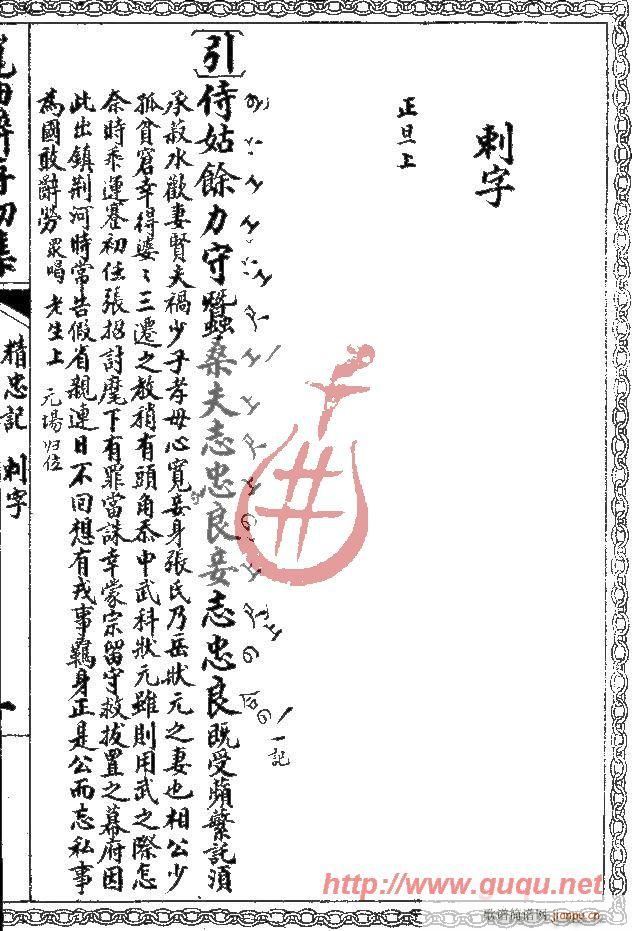 刺字
正旦上
[引]侍姑餘力守蠶桑夫志忠良妾志忠良既受蘋蘩託須
一記
承菽水歡妻賢夫禍少子孝母心寬妾身張氏乃岳狀元之妻也相公少
孤貧窘幸得婆〻三遷之教稍有頭角忝中武科狀元雖則用武之際怎
奈時乖運蹇初任張招討麾下有罪當誅幸蒙宗留守救拔置之幕府因
此出鎮荆河時常告假省親連日不回想有戎事羈身正是公而忘私事
為國敢辭勞 眾喝 老生上 元場归位
精忠記 刺字
一
http://www.guqu.net
歌谱简谱网
jianpu.cn